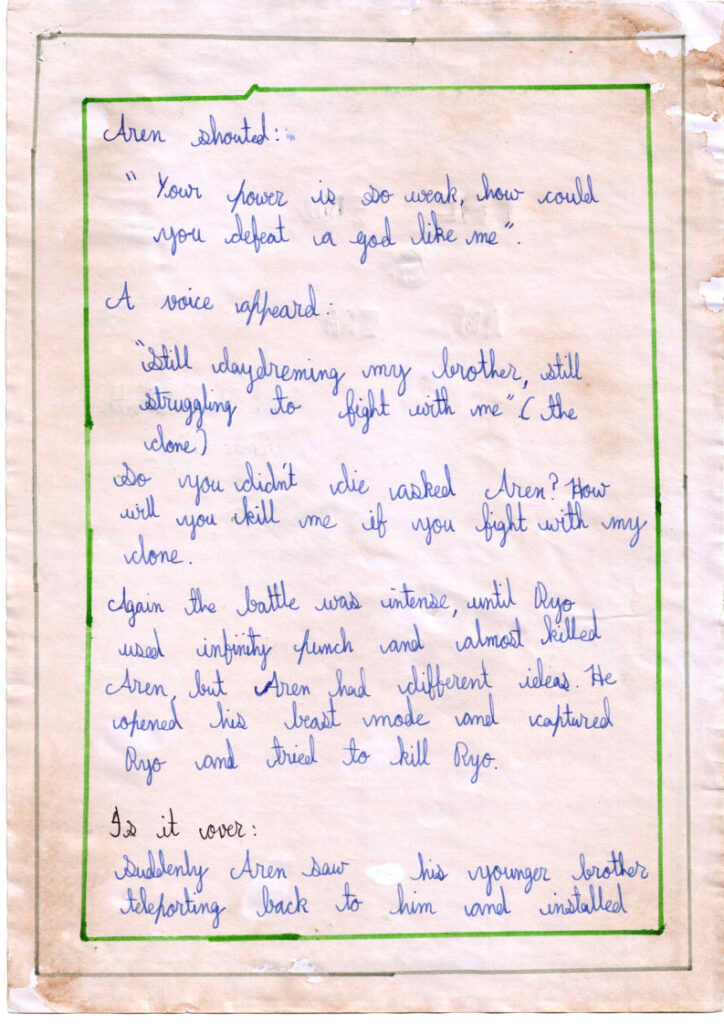 Aren shouted:
" Your power is so weak, how could
you defeat a god like me".
A voice appeared:
"Still daydreming my brother, still
struggling to fight with me" (the
clone)
So you didn't die asked Aren? How
will you kill me if you fight with my
clone.
Again the battle was intense, until Ryo
used infinity punch and almost killed
Aren, but Aren had different ideas. He
opened his beast mode and captured
Ryo and tried to kill Ryo.
Is it over:
Suddenly Aren saw his younger brother
teleporting back to him and installed